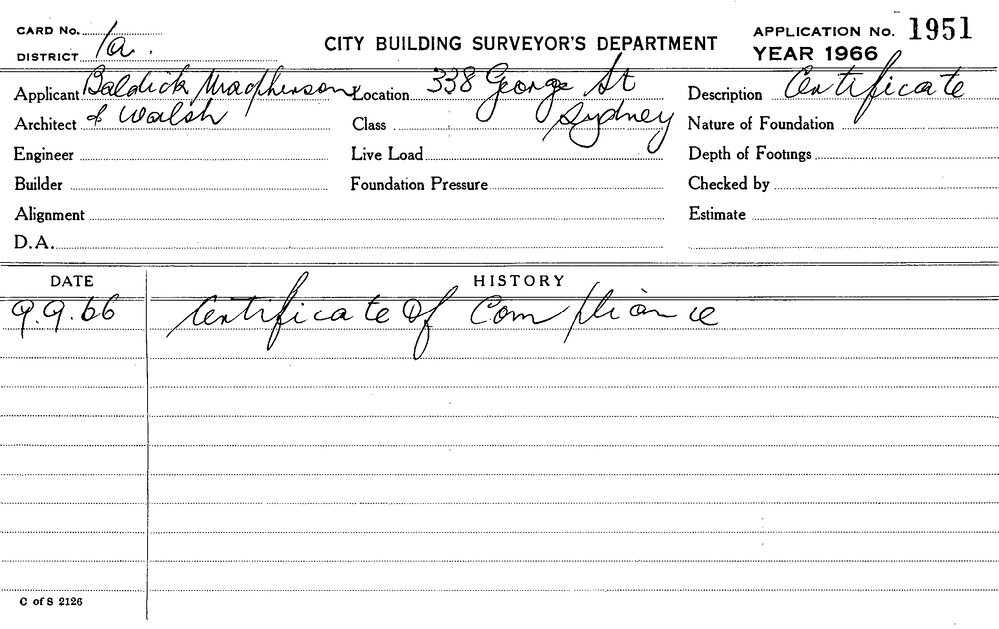 CARD No.
DISTRICT 1a.
CITY BUILDING SURVEYOR'S DEPARTMENT
APPLICATION No. 1951
YEAR 1966
Applicant Baldick Macpherson
Architect & Walsh
Engineer
Builder
Alignment
D.A.
Location 338 George St
Sydney
Class
Live Load
Foundation Pressure
Description Certificate
Nature of Foundation
Depth of Footings
Checked by
Estimate
DATE HISTORY
9.9.66 Certificate Of Compliance
C of S 2126